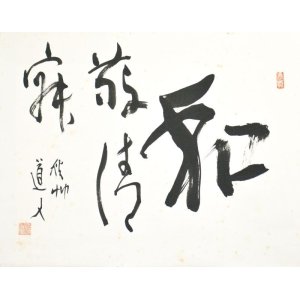 和
敬清
寂
道人